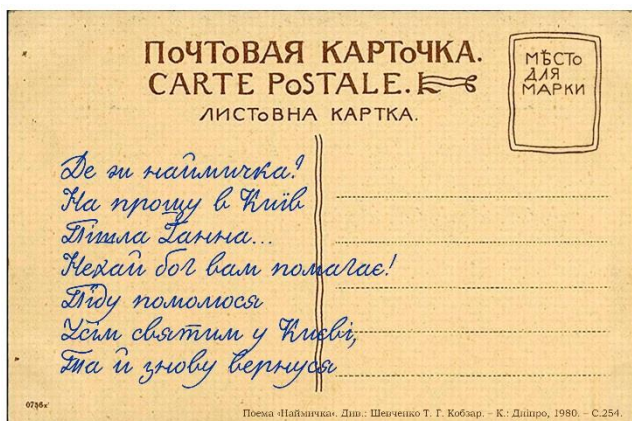 ПОЧТОВАЯ КАРТОЧКА.
CARTE POSTALE.
ЛИСТОВНА КАРТКА.
МѢСТО
ДЛЯ
МАРКИ
Де ж наймичка?
На прощу в Київ
Пішла Ганна...
Нехай бог вам помагає!
Піду помолюся
Усім святим у Києві,
Та й знову вернуся
0756к
Поема «Наймичка». Див.: Шевченко Т. Г. Кобзар. – К.: Дніпро, 1980. – С.254.